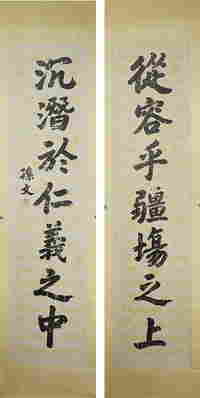 從容乎疆塲之上
沉潛於仁義之中
孫文